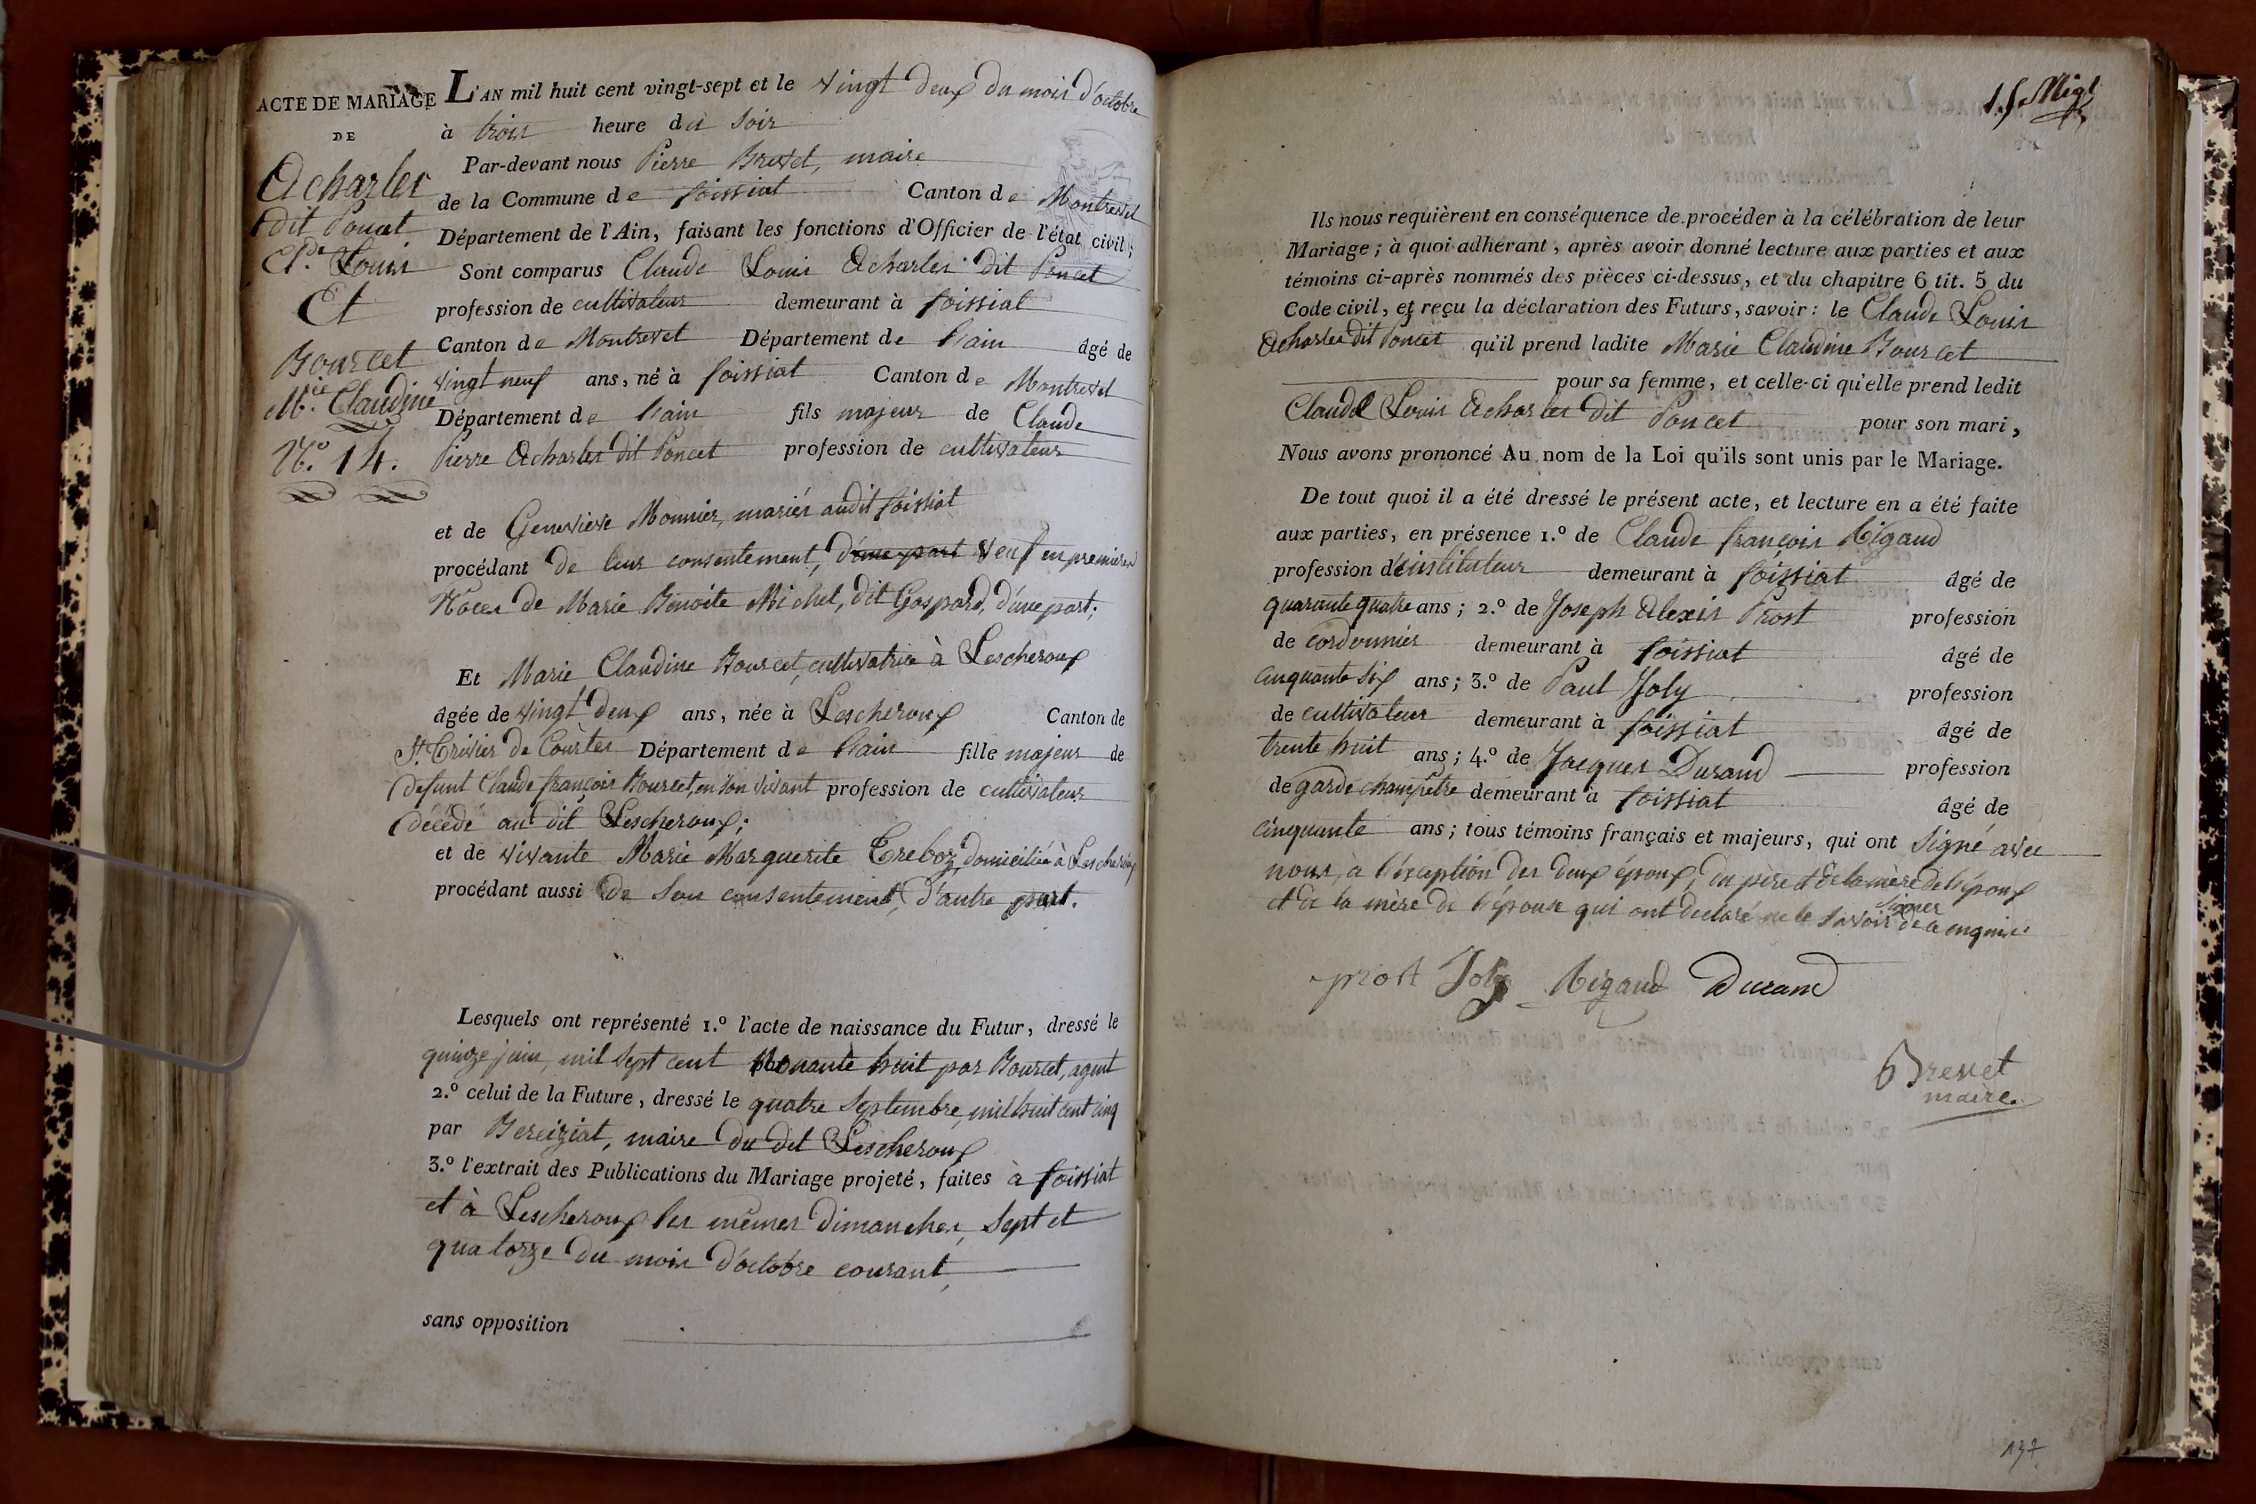 ACTE DE MARIAGE
DE
Acharles
dit Poncet
Cl.de Louis
Et
Bourcet
M.ie Claudine
N.o 14.
L'AN mil huit cent vingt-sept et le vingt deux du mois d'octobre
à trois heure du soir
Par-devant nous Pierre Brevet, maire
de la Commune de foissiat Canton de Montrevel
Département de l'Ain, faisant les fonctions d'Officier de l'état civil;
Sont comparus Claude Louis Acharles dit Poncet
profession de cultivateur demeurant à foissiat
Canton de Montrevel Département de l'ain âgé de
vingt neuf ans, né à foissiat Canton de Montrevel
Département de l'ain fils majeur de Claude
Pierre Acharles dit Poncet profession de cultivateur
et de Genevieve Monnier, mariés audit foissiat
procédant de leur consentement, d'une part veuf en premieres
Noces de Marie Benoite Michel, dit Gaspard, d'une part;
Et Marie Claudine Bourcet, cultivatrice à Lescheroux
âgée de vingt deux ans, née à Lescheroux Canton de
St. Trivier de Courtes Département de l'ain fille majeur de
defunt Claude françois Bourcet, en son vivant profession de cultivateur
décédé au dit Lescheroux;
et de vivante Marie Marguerite Treboz, domiciliée à Lescheroux
procédant aussi de son consentement, d'autre part.
Lesquels ont représenté 1.o l'acte de naissance du Futur, dressé le
quinze juin, mil sept cent nonante huit par Bourcet, agent
2.o celui de la Future, dressé le quatre Septembre, mil huit cent cinq
par Bereiziat, maire du dit Lescheroux
3.o l'extrait des Publications du Mariage projeté, faites à foissiat
et à Lescheroux les mêmes dimanches, Sept et
quatorze du mois d'octobre courant,
sans opposition
Ils nous requièrent en conséquence de procéder à la célébration de leur
Mariage; à quoi adhérant, après avoir donné lecture aux parties et aux
témoins ci-après nommés des pièces ci-dessus, et du chapitre 6 tit. 5 du
Code civil, et reçu la déclaration des Futurs, savoir: le Claude Louis
Acharles dit Poncet qu'il prend ladite Marie Claudine Bourcet
pour sa femme, et celle-ci qu'elle prend ledit
Claude Louis Acharles dit Poncet pour son mari,
Nous avons prononcé Au nom de la Loi qu'ils sont unis par le Mariage.
De tout quoi il a été dressé le présent acte, et lecture en a été faite
aux parties, en présence 1.o de Claude françois Rigaud
profession d'instituteur demeurant à foissiat âgé de
quarante quatre ans; 2.o de Joseph Alexis Prost profession
de cordonnier demeurant à foissiat âgé de
cinquante six ans; 3.o de Paul Joly profession
de cultivateur demeurant à foissiat âgé de
trente huit ans; 4.o de Jacques Durand profession
de garde champêtre demeurant à foissiat âgé de
cinquante ans; tous témoins français et majeurs, qui ont signé avec
nous, à l'éxception des deux époux, du père et de la mère de l'époux
et de la mère de l'épouse qui ont declaré ne le savoir signer de ce enquis.
prost Joly Rigaud Durand
Brevet
maire
137